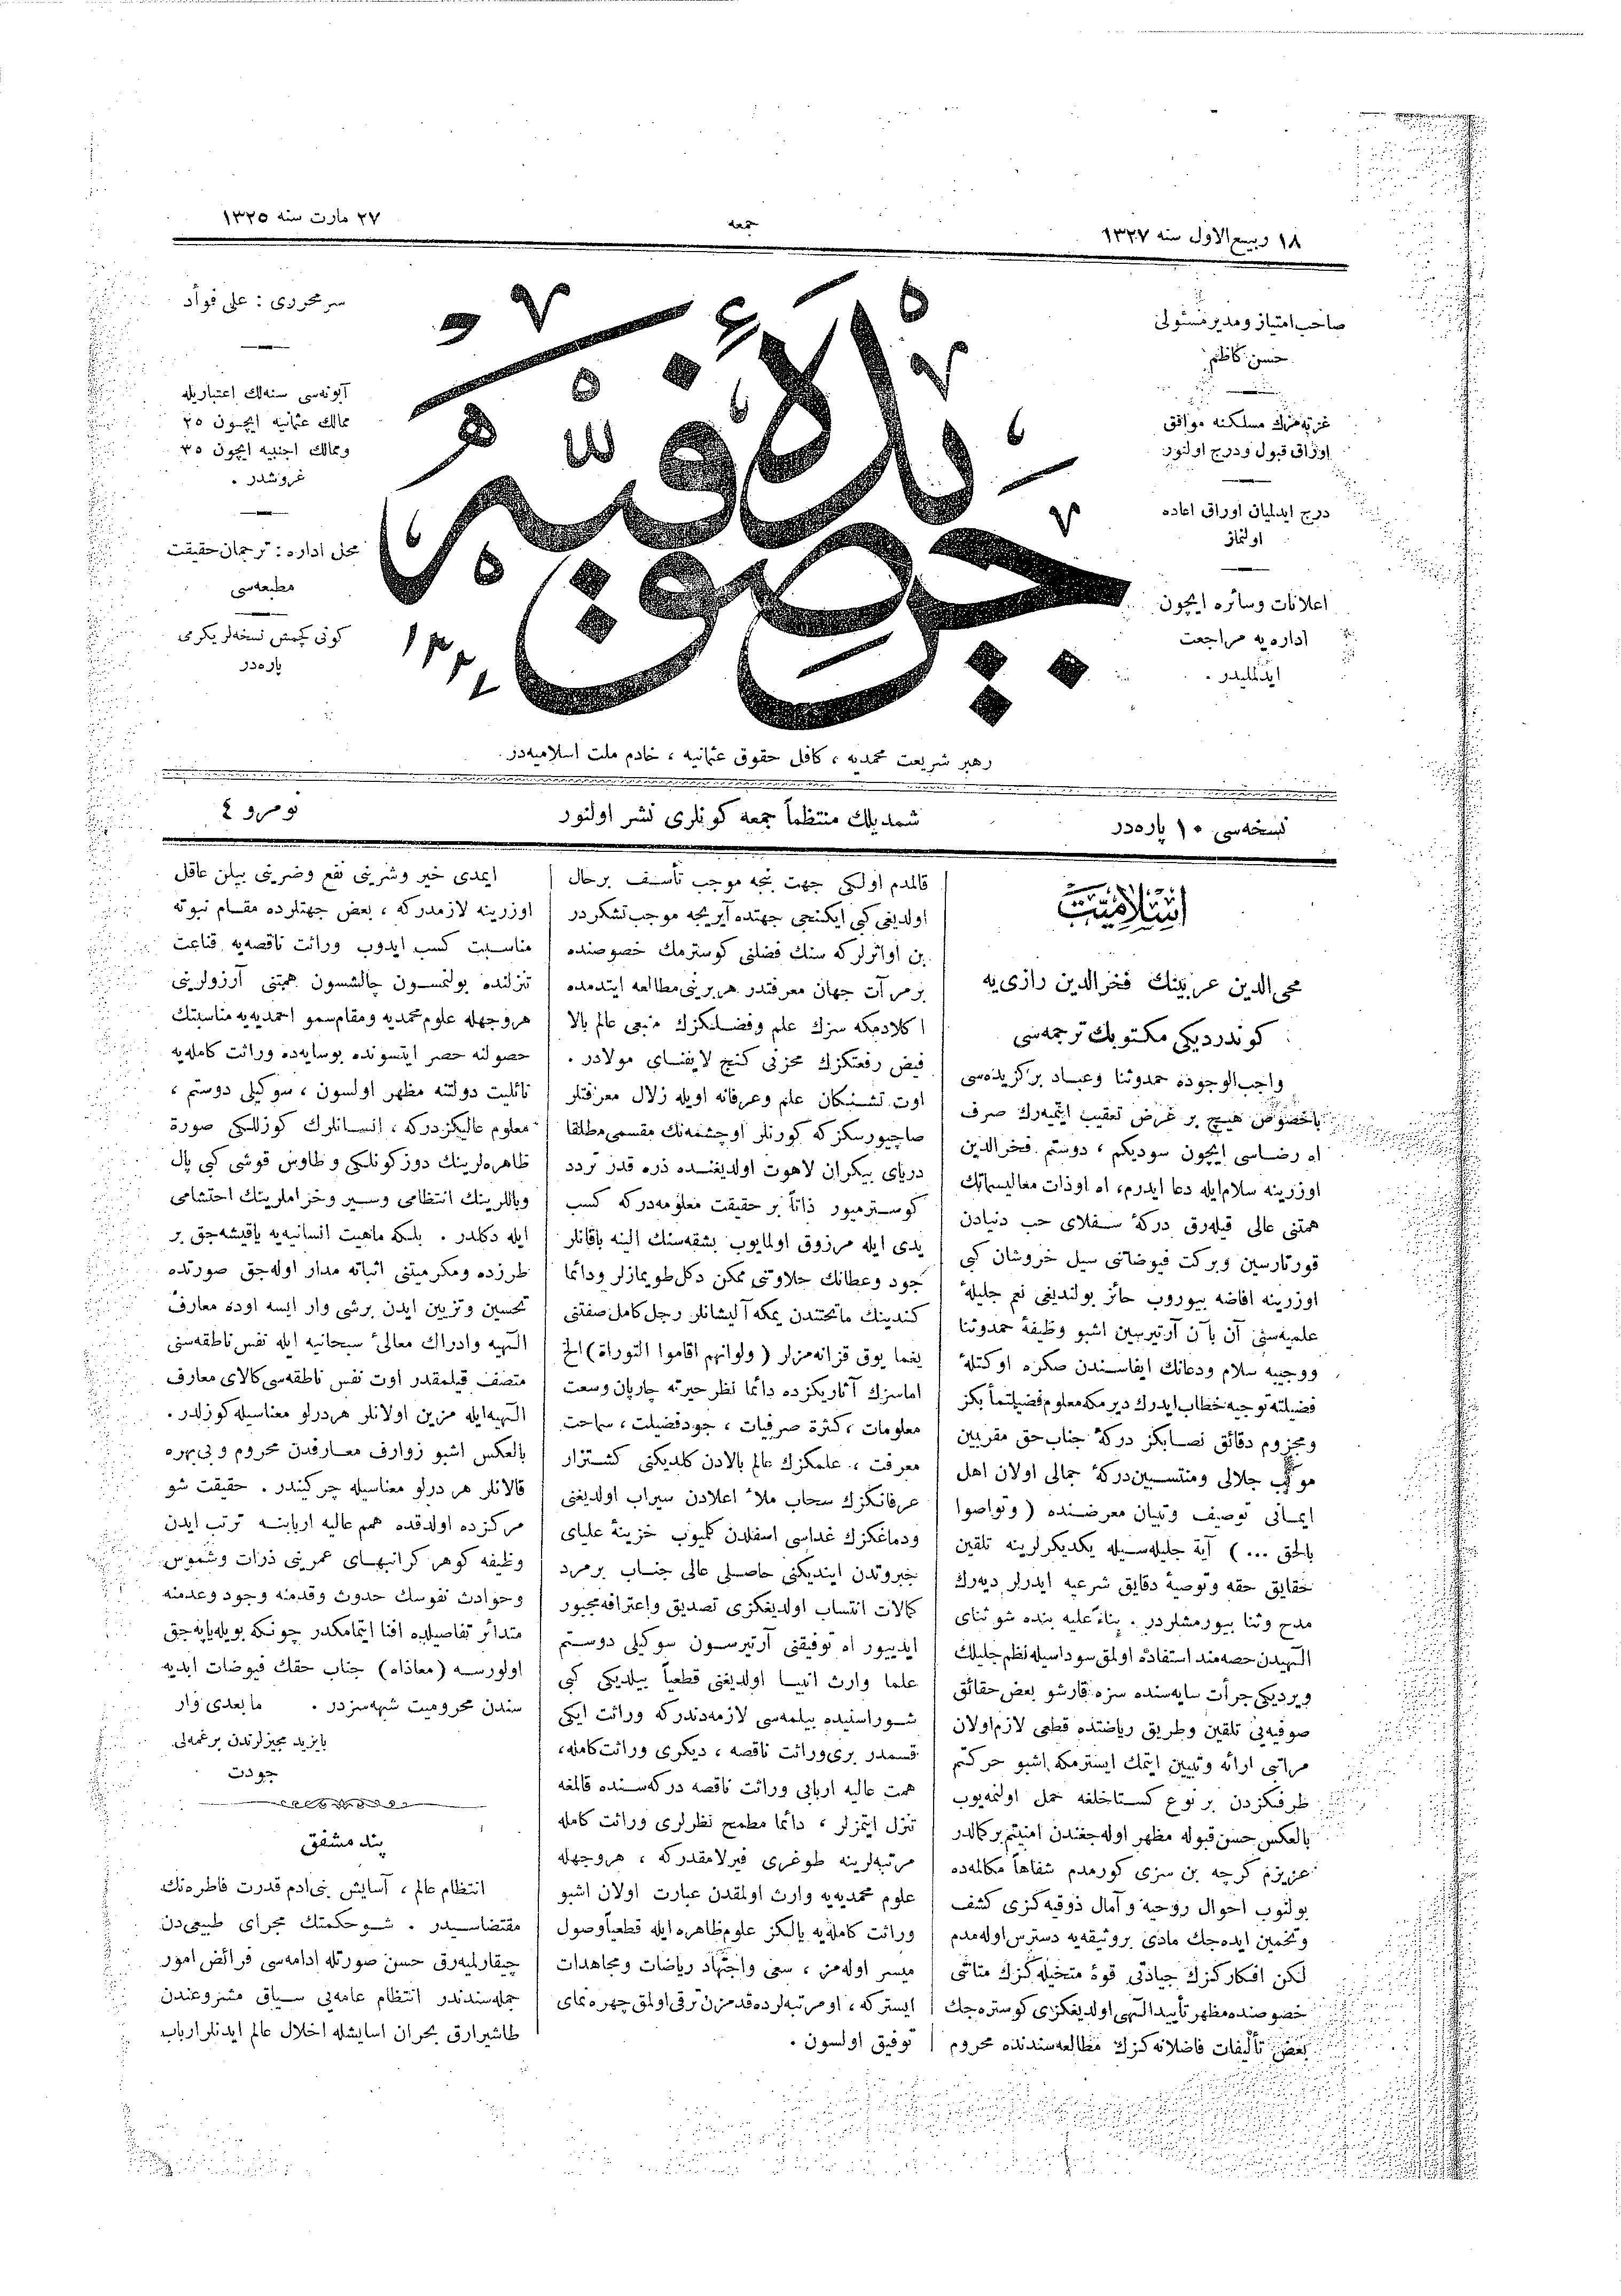 ١٨ ربيع‌الاول سنه ١٣٢٧
جمعه
٢٧ مارت سنه ١٣٢٥
صاحب امتياز ومدير مسئولى
حسن كاظم
غزته‌مزك مسلكنه موافق
اوراق قبول ودرج اولنور
درج ايدلميان اوراق اعاده
اولنماز
اعلانات وسائره ايچون
اداره‌يه مراجعت
ايدلمليدر .
جريدهٔ صوفيه
١٣٢٧
سرمحررى : على فوأد
آبونه‌سى سنه‌لك اعتباريله
ممالك عثمانيه ايچون ٢٥
وممالك اجنبيه ايچون ٣٥
غروشدر .
محل اداره : ترجمان حقيقت
مطبعه‌سى
كونى كچمش نسخه‌لر يكرمى
پاره‌در
رهبر شريعت محمديه ، كافل حقوق عثمانيه ، خادم ملت اسلاميه‌در.
نسخه‌سى ١٠ پاره‌در
شمديلك منتظماً جمعه كونلرى نشر اولنور
نومرو ٤
اسلاميت
محى الدين عربينك فخرالدين رازى‌يه
كوندرديكى مكتوبك ترجمه‌سى
واجب‌الوجوده حمدوثنا وعباد بركزيده‌سى
باخصوص هيچ بر غرض تعقيب ايتميه‌رك صرف
اه رضاسى ايچون سوديكم ، دوستم فخرالدين
اوزرينه سلام ايله دعا ايدرم، اه اوذات معاليسماتك
همتنى عالى قيله‌رق دركهٔ سفلاى حب دنيادن
قورتارسين وبركت فيوضاتنى سيل خروشان كبى
اوزرينه افاضه بيوروب حائز بولنديغى نعم جليلهٔ
علميه‌سنى آن بآن آرتيرسين اشبو وظيفهٔ حمدوثنا
ووجيبه سلام ودعانك ايفاسندن صكره اوكتلهٔ
فضيلته توجيه خطاب ايدرك ديرمكه معلوم فضيلتمأبكز
ومجزوم دقائق نصابكز دركهٔ جناب حق مقربين
موكب جلالى ومنتسبين دركهٔ جمالى اولان اهل
ايمانى توصيف وتبيان معرضنده ( وتواصوا
بالحق ... ) آية جليله‌سيله يكديكرلرينه تلقين
حقايق حقه وتوصيهٔ دقايق شرعيه ايدرلر ديه‌رك
مدح وثنا بيورمشلردر . بناءً عليه بنده شو ثناى
الهيدن حصه‌مند استفاده اولمق سوداسيله نظم جليلك
ويرديكى جرأت سايه‌سنده سزه قارشو بعض حقائق
صوفيه‌يى تلقين وطريق رياضتده قطعى لازم اولان
مراتبى ارائه وتبيين ايتمك ايسترمكه اشبو حركتم
طرفكزدن بر نوع كستاخلغه حمل اولنميوب
بالعكس حسن قبوله مظهر اوله‌جغندن امنيتم بركمالدر
عزيزم كرچه بن سزى كورمدم شفاهاً مكالمه‌ده
بولنوب احوال روحيه وآمال ذوقيه‌كزى كشف
وتخمين ايده‌جك مادى بروثيقه‌يه دسترس اوله‌مدم
لكن افكاركزك جياذتى قوهٔ متخيله‌كزك متانتى
خصوصنده مظهر تأييد الهى اولديغكزى كوستره‌جك
بعض تأليفات فاضلانه‌كزك مطالعه‌سندنده محروم
قالمدم اولكى جهت بنجه موجب تأسف برحال
اولديغى كبى ايكنجى جهتده آيريجه موجب تشكردر
بن اواثرلركه سنك فضلنى كوسترمك خصوصنده
برمرآت جهان معرفتدر هربرينى مطالعه ايتدمده
اكلادمكه سزك علم وفضلكزك منبعى عالم بالا
فيض رفعتكزك مخزنى كنج لايفناى مولادر .
اوت تشنكان علم وعرفانه اويله زلال معرفتلر
صاچيورسكزكه كورنلر اوچشمه‌نك مقسمى مطلقا
درياى بيكران لاهوت اولديغنده ذره قدر تردد
كوسترميور ذاتاً بر حقيقت معلومه‌دركه كسب
يدى ايله مرزوق اولمايوب بشقه‌سنك الينه باقانلر
جود وعطانك حلاوتنى ممكن دكل طويمازلر ودائما
كندينك ماتحتندن يمكه آليشانلر رجل كامل صفتنى
يغما يوق قزانه‌مزلر ( ولوانهم اقاموا التوراة) الخ
اماسزك آثاريكزده دائما نظر حيرته چارپان وسعت
معلومات ، كثرة صرفيات ، جودفضيلت ، سماحت
معرفت ، علمكزك عالم بالادن كلديكنى كشتزار
عرفانكزك سحاب ملاٴ اعلادن سيراب اولديغنى
ودماغكزك غداسى اسفلدن كلميوب خزينهٔ علياى
جبروتدن اينديكنى حاصلى عالى جناب برمرد
كمالات انتساب اولديغكزى تصديق واعترافه مجبور
ايدييور اه توفيقنى آرتيرسون سوكيلى دوستم
علما وارث انبيا اولديغى قطعياً بيلديكى كبى
شوراسنيده بيلمه‌سى لازمه‌دندركه وراثت ايكى
قسمدر برى وراثت ناقصه ، ديكرى وراثت كامله،
همت عاليه اربابى وراثت ناقصه دركه‌سنده قالمغه
تنزل ايتمزلر ، دائما مطمح نظرلرى وراثت كامله
مرتبه‌لرينه طوغرى فيرلامقدركه ، هروجهله
علوم محمديه‌يه وارث اولمقدن عبارت اولان اشبو
وراثت كامله‌يه يالكز علوم ظاهره ايله قطعياً وصول
ميسر اوله‌مز ، سعى واجتهاد رياضات ومجاهدات
ايستركه ، اومرتبه‌لرده قدمزن ترقى اولمق چهره‌نماى
توفيق اولسون .
ايمدى خير وشرينى نفع وضررينى بيلن عاقل
اوزرينه لازمدركه ، بعض جهتلرده مقام نبوته
مناسبت كسب ايدوب وراثت ناقصه‌يه قناعت
تنزلنده بولنمسون چالشسون همتنى آرزولرينى
هروجهله علوم محمديه ومقام سمو احمديه‌يه مناسبتك
حصولنه حصر ايتسونده بوسايه‌ده وراثت كامله‌يه
نائليت دولتنه مظهر اولسون ، سوكيلى دوستم ،
معلوم عاليكزدركه ، انسانلرك كوزللكى صورة
ظاهره‌لرينك دوزكونلكى وطاوس قوشى كبى بال
وباللرينك انتظامى وسير وخراملرينك احتشامى
ايله دكلدر . بلكه ماهيت انسانيه‌يه ياقيشه‌جق بر
طرزده ومكرميتنى اثباته مدار اوله‌جق صورتده
تحسين وتزيين ايدن برشى وار ايسه اوده معارف
الهيه وادراك معالئ سبحانيه ايله نفس ناطقه‌سنى
متصف قيلمقدر اوت نفس ناطقه‌سى كالاى معارف
الهيه‌ايله مزين اولانلر هردرلو معناسيله كوزلدر.
بالعكس اشبو زوارف معارفدن محروم وبى‌بهره
قالانلر هر درلو معناسيله چركيندر . حقيقت شو
مركزده اولدقده همم عاليه اربابنه ترتب ايدن
وظيفه كوهر كرانبهاى عمرينى ذرات وشموس
وحوادث نفوسك حدوث وقدمنه وجود وعدمنه
متدائر تفاصيلده افنا ايتمامكدر چونكه بويله ياپه‌جق
اولورسه (معاذاه) جناب حقك فيوضات ابديه
سندن محروميت شبهه‌سزدر . مابعدى وار
بايزيد مجيزلرندن برغمه‌لى
جودت
پند مشفق
انتظام عالم ، آسايش بنى‌ادم قدرت فاطره‌نك
مقتضاسيدر . شوحكمتك مجراى طبيعى‌دن
چيقارلميه‌رق حسن صورتله ادامه‌سى فرائض امور
جمله‌سندندر انتظام عامه‌يى سياق مشروعندن
طاشيرارق بحران اسايشله اخلال عالم ايدنلر ارباب